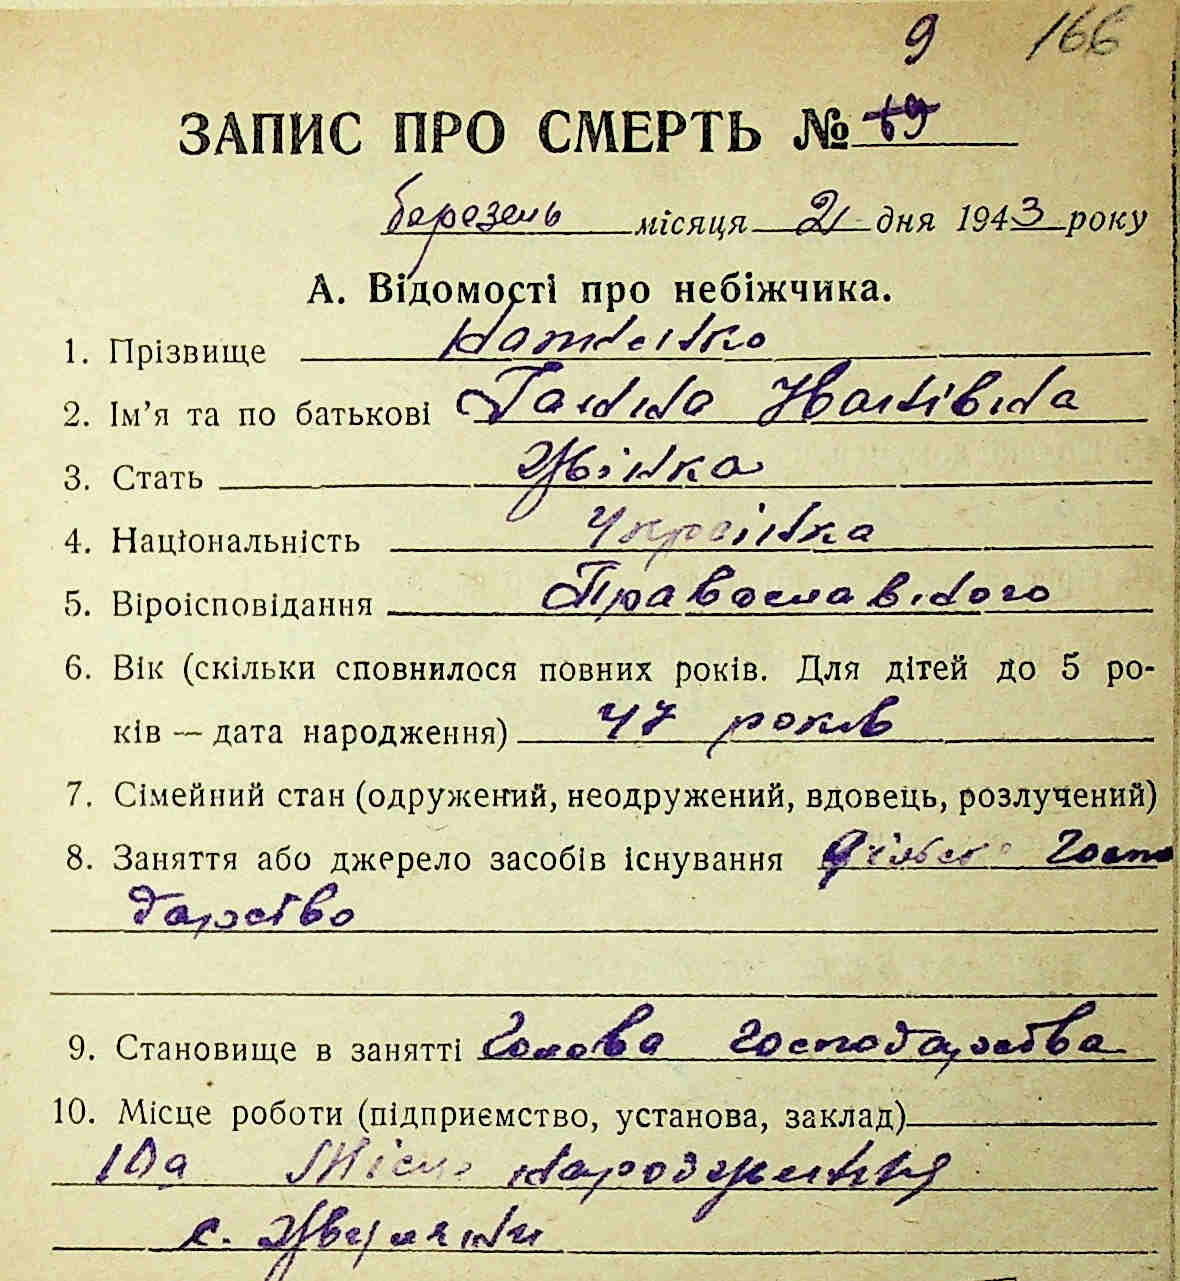 9 166
ЗАПИС ПРО СМЕРТЬ № 19
березень місяця 21 дня 1943 року
А. Відомості про небіжчика.
1. Прізвище
2. Ім’я та по батькові Ганна
3. Стать Жінка
4. Національність Українка
5. Віроісповідання Православного
6. Вік (скільки сповнилося повних років. Для дітей до 5 ро-
ків — дата народження) 47 років
7. Сімейний стан (одружений, неодружений, вдовець, розлучений)
8. Заняття або джерело засобів існування Сільське госпо
дарство
9. Становище в занятті Голова господарства
10. Місце роботи (підприємство, установа, заклад)
10а Місце народження
с.